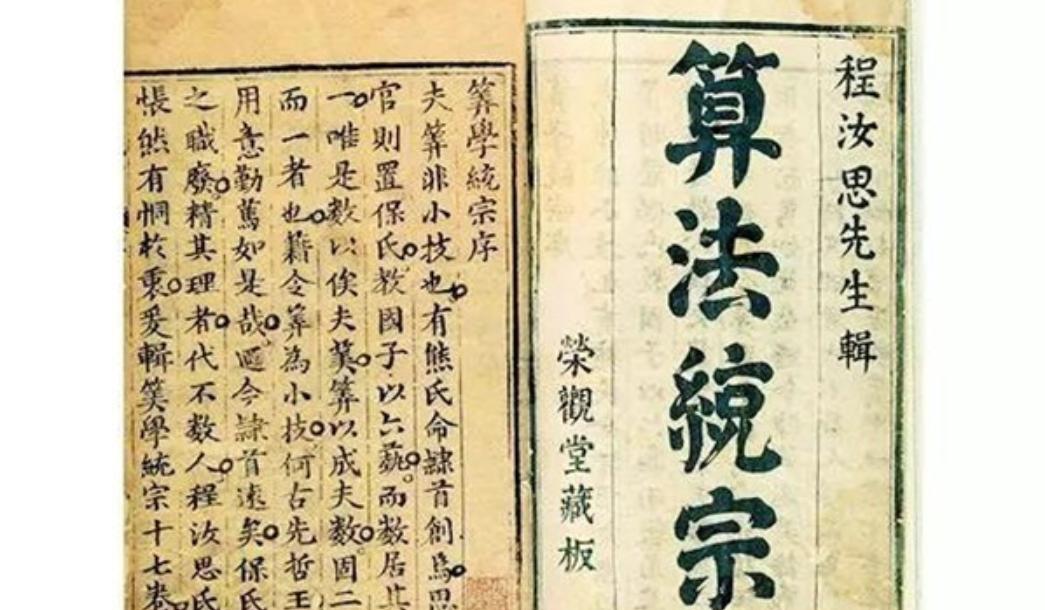 程汝思先生輯
算法統宗
榮觀堂藏板
筭學統宗序
夫筭非小技也有熊氏命隸首創爲
官則置保氏教國子以六藝而數居其
一唯是數以俟夫筭筭以成夫數固二
而一者也藉令筭為小技何古先哲王
用意勤篤如是哉迺今隸首遠矣保氏
之職廢精其理者代不數人程汝思氏
悵然有恫於衷爰輯筭學統宗十七卷